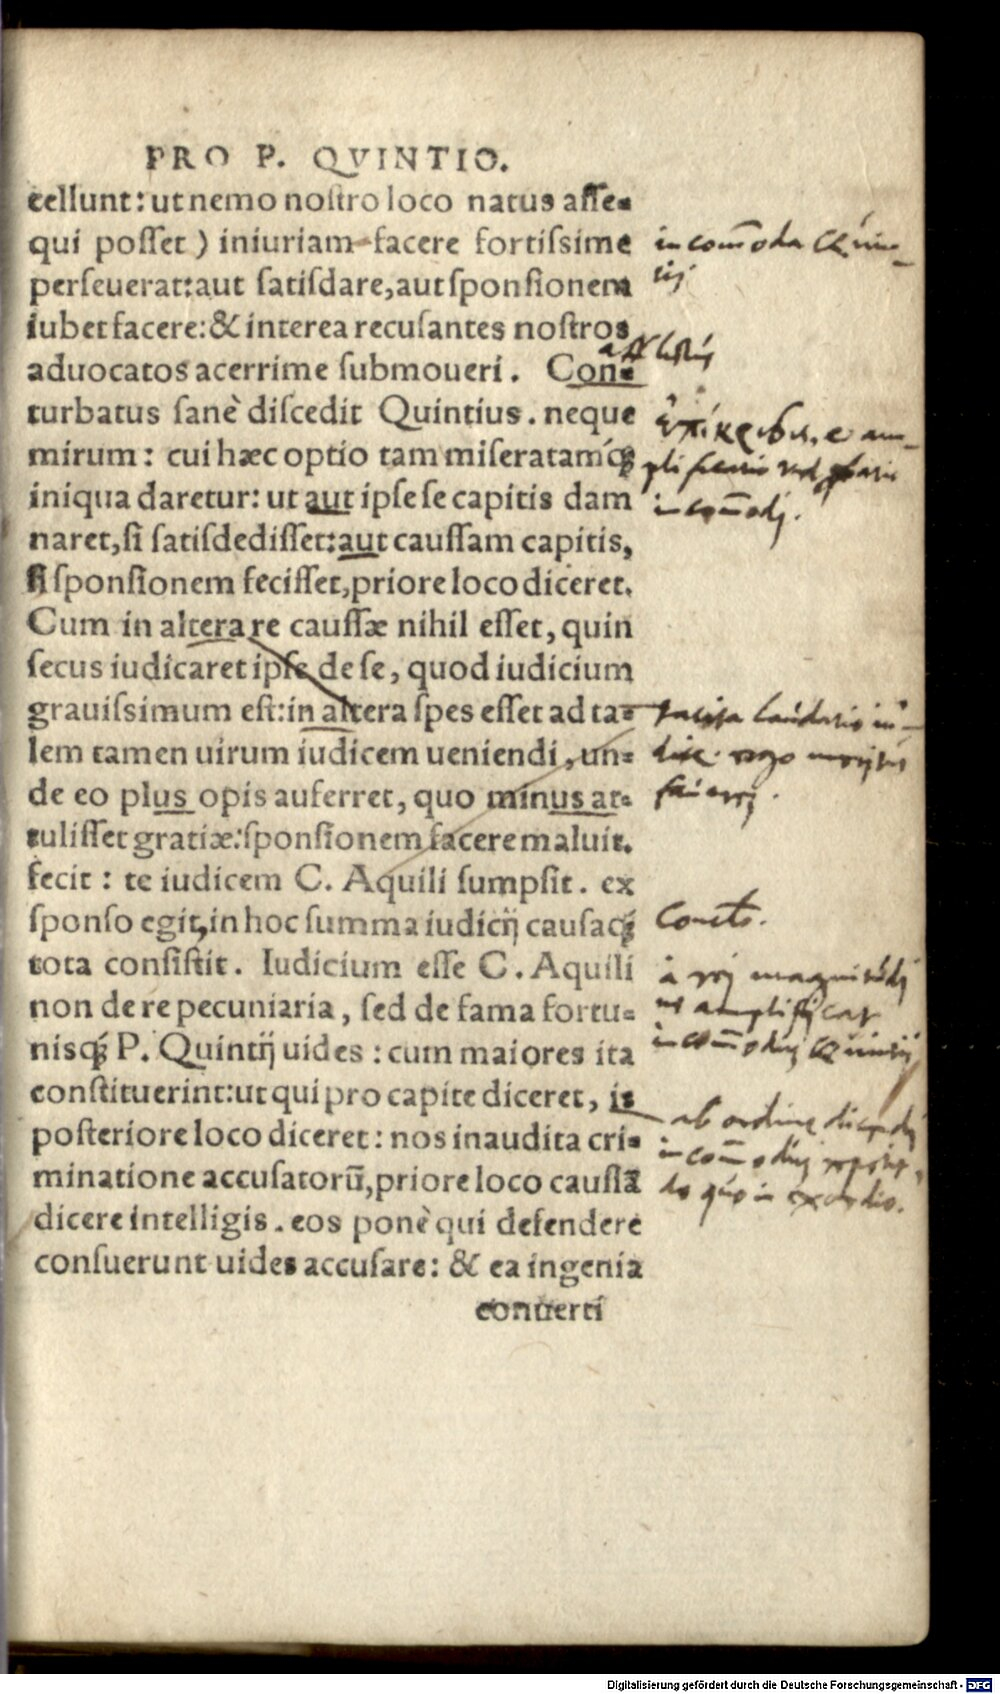 PRO P. QVINTIO.
cellunt: ut nemo nostro loco natus asse-
qui posset) iniuriam facere fortissime
perseuerat: aut satisdare, aut sponsionem
iubet facere: & interea recusantes nostros
aduocatos acerrime submoueri. Con-
turbatus sanè discedit Quintius. neque
mirum: cui hæc optio tam misera tamq́;
iniqua daretur: ut aut ipse se capitis dam
naret, si satisdedisset: aut caussam capitis,
si sponsionem fecisset, priore loco diceret.
Cum in altera re caussæ nihil esset, quin
secus iudicaret ipse de se, quod iudicium
grauissimum est: in altera spes esset ad ta-
lem tamen uirum iudicem ueniendi, un-
de eo plus opis auferret, quo minus at-
tulisset gratiæ: sponsionem facere maluit.
fecit: te iudicem C. Aquili sumpsit. ex
sponso egit, in hoc summa iudicij causaq́;
tota consistit. Iudicium esse C. Aquili
non de re pecuniaria, sed de fama fortu-
nisq́; P. Quintij uides: cum maiores ita
constituerint: ut qui pro capite diceret, is
posteriore loco diceret: nos inaudita cri-
minatione accusatorũ, priore loco caussã
dicere intelligis. eos ponè qui defendere
consuerunt uides accusare: & ea ingenia
conuerti
incom̄oda Quin-
tij
in com̄odj.
tacita laudatio iu-
à rej magnitudj
ne amplificat
incom̄oduz Quintij
ab ordine dicendj
in exordio.
Digitalisierung gefördert durch die Deutsche Forschungsgemeinschaft - DFG